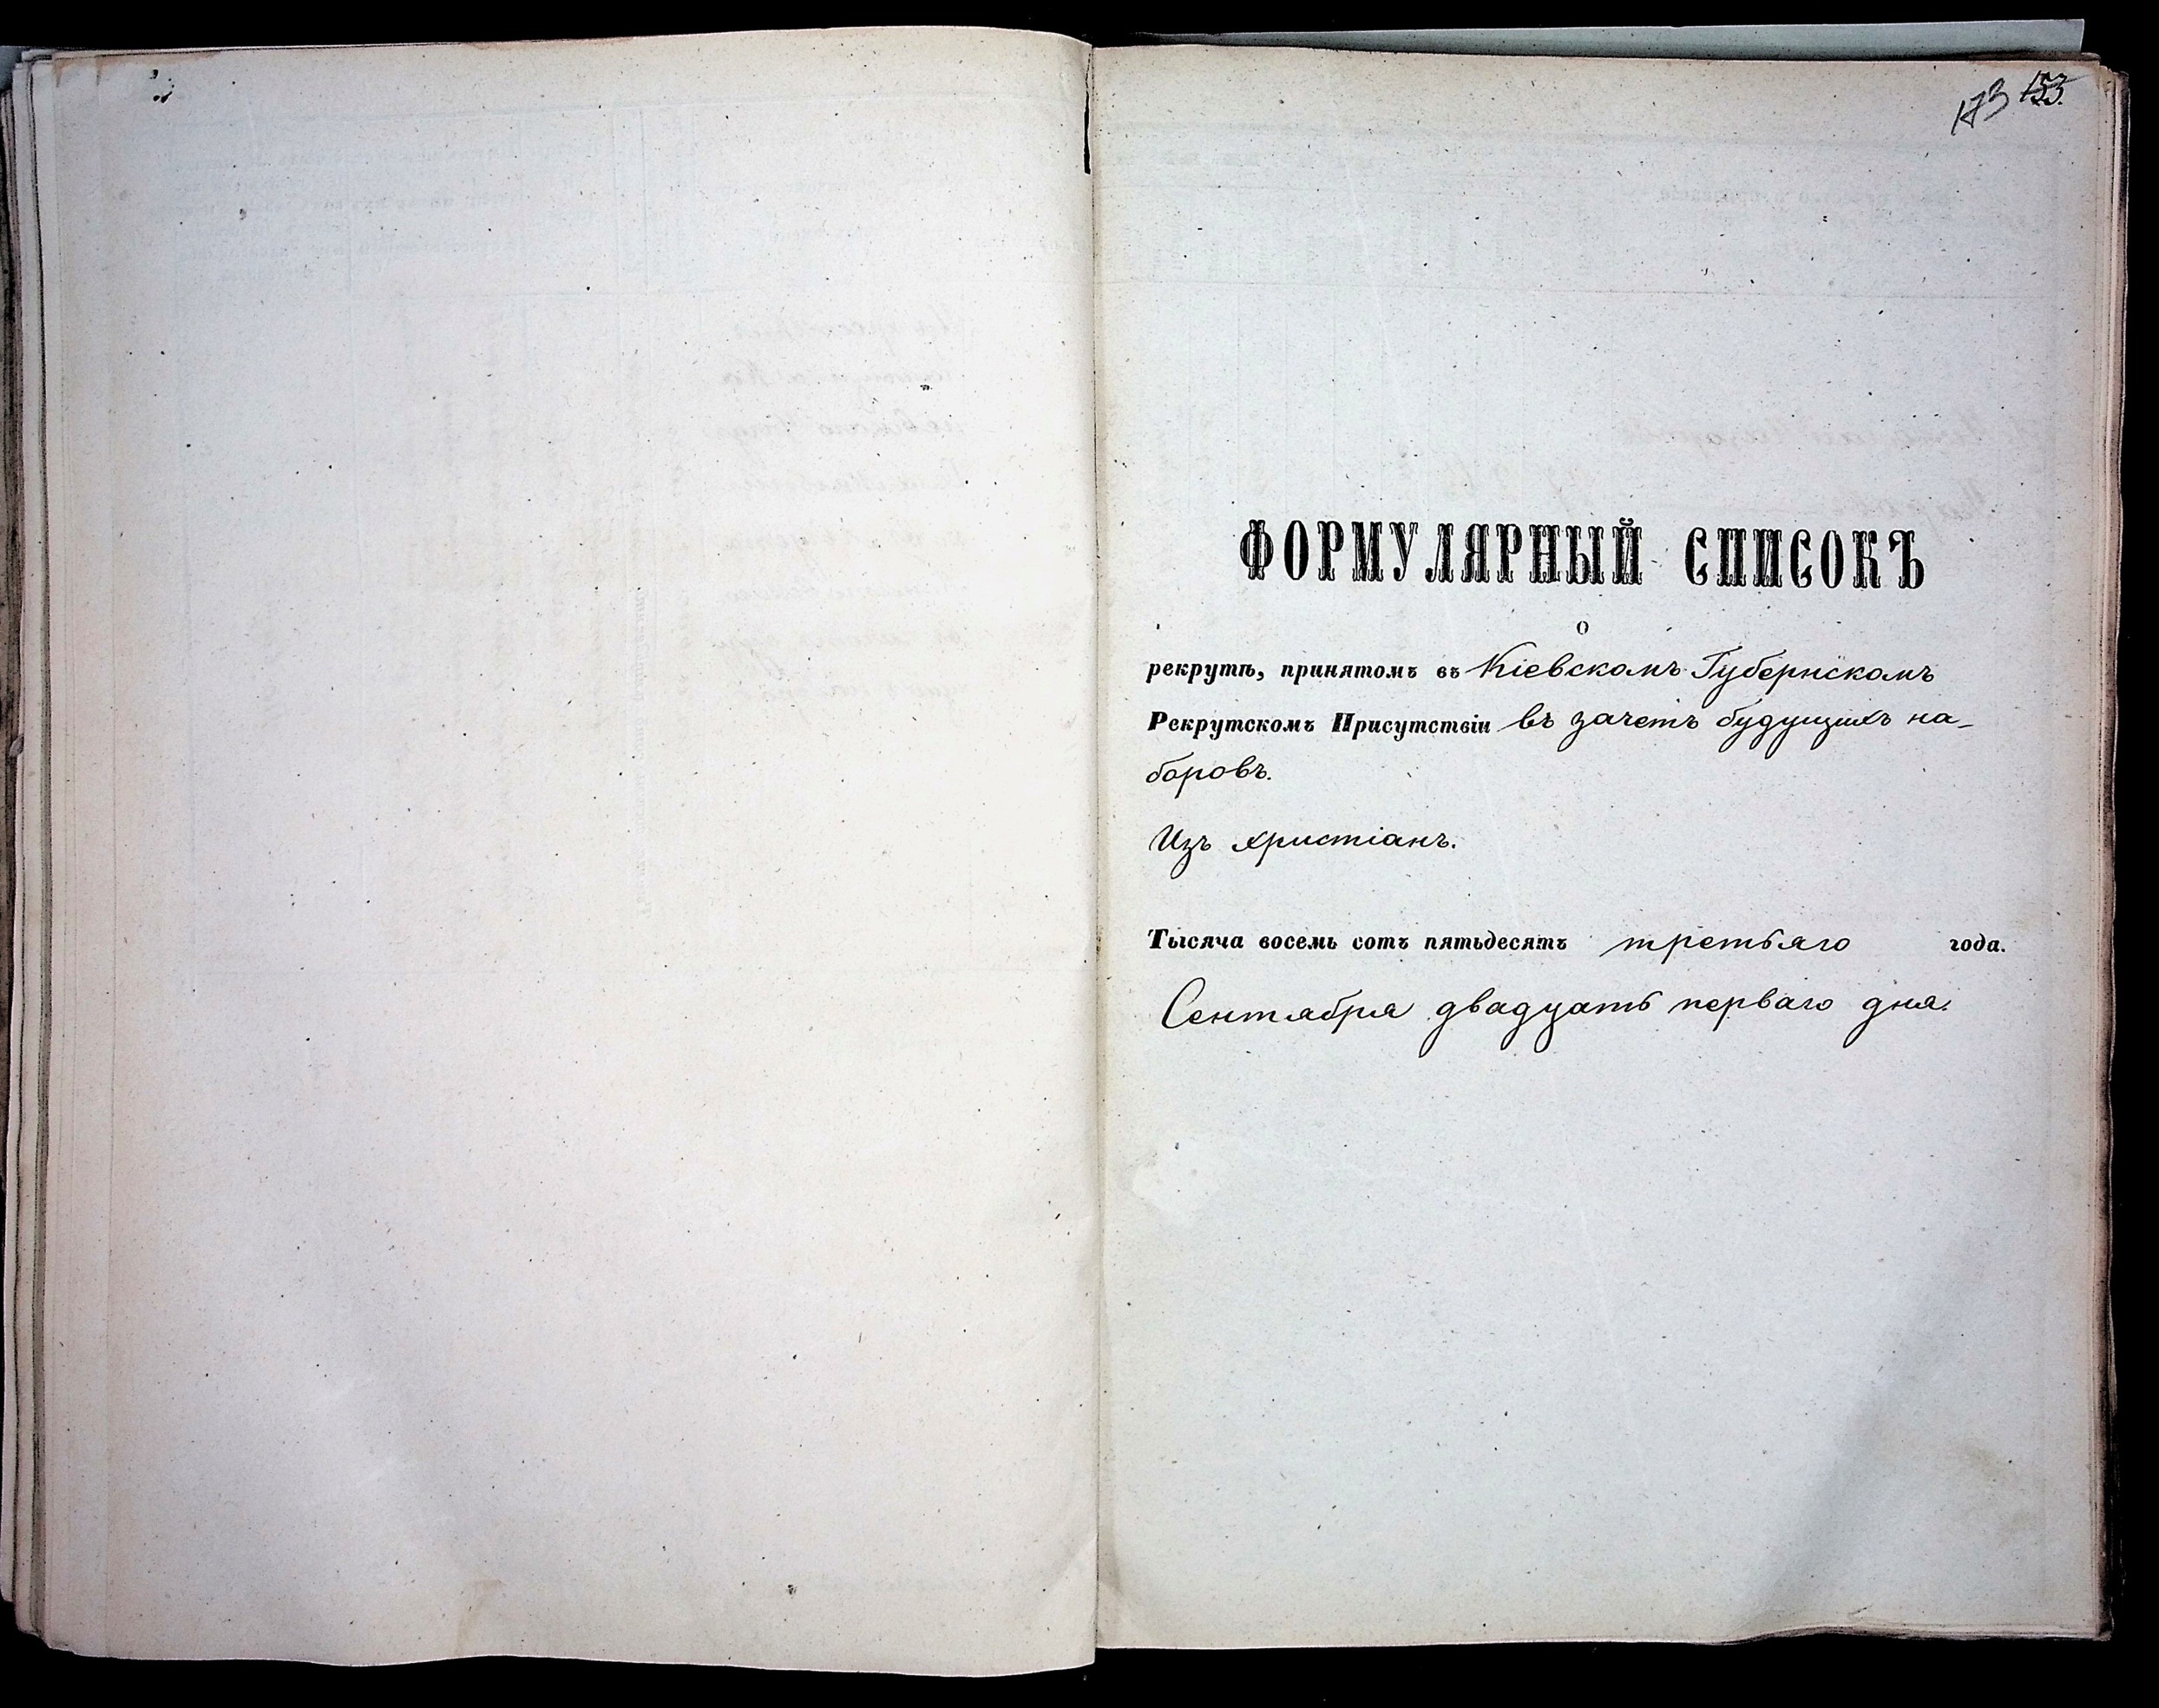 173 153.
ФОРМУЛЯРНЫЙ СПИСОКЪ
о
рекрутѣ, принятомъ въ Кіевскомъ Губернскомъ
Рекрутскомъ Присутствіи въ зачетъ будущихъ на-
боровъ.
Изъ христіанъ.
Тысяча восемь сотъ пятьдесятъ третьяго года.
Сентября двадцать перваго дня.